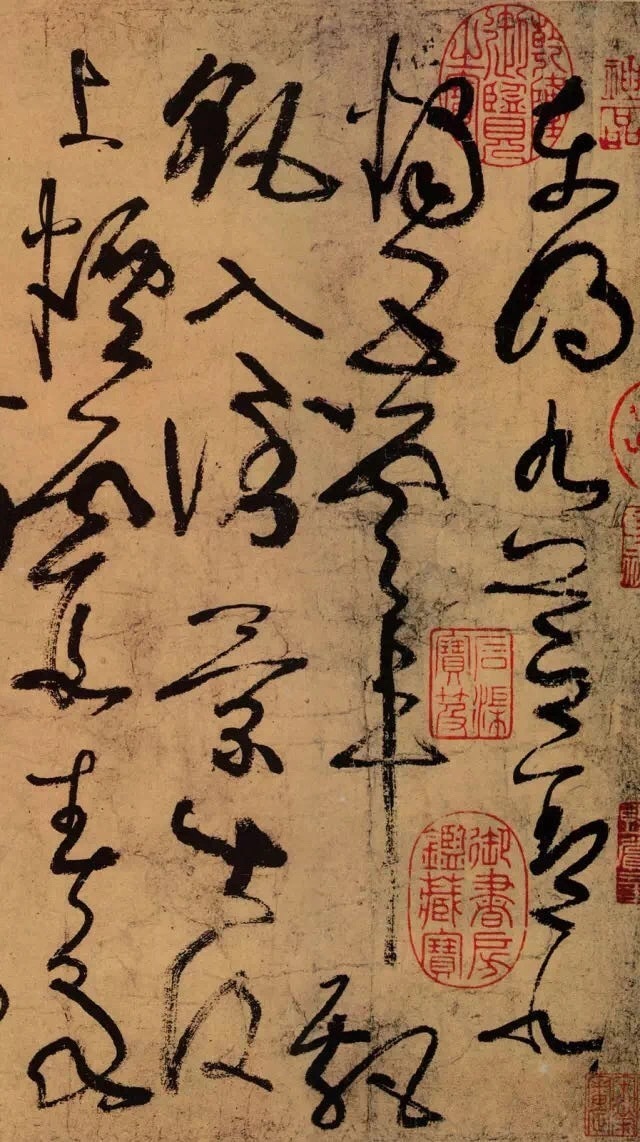 神品
乾隆御覽之寶
東明九芝蓋北
燭五雲車飄
飖入倒景出没
上煙霞春泉
石渠寶笈
御書房鑑藏寶